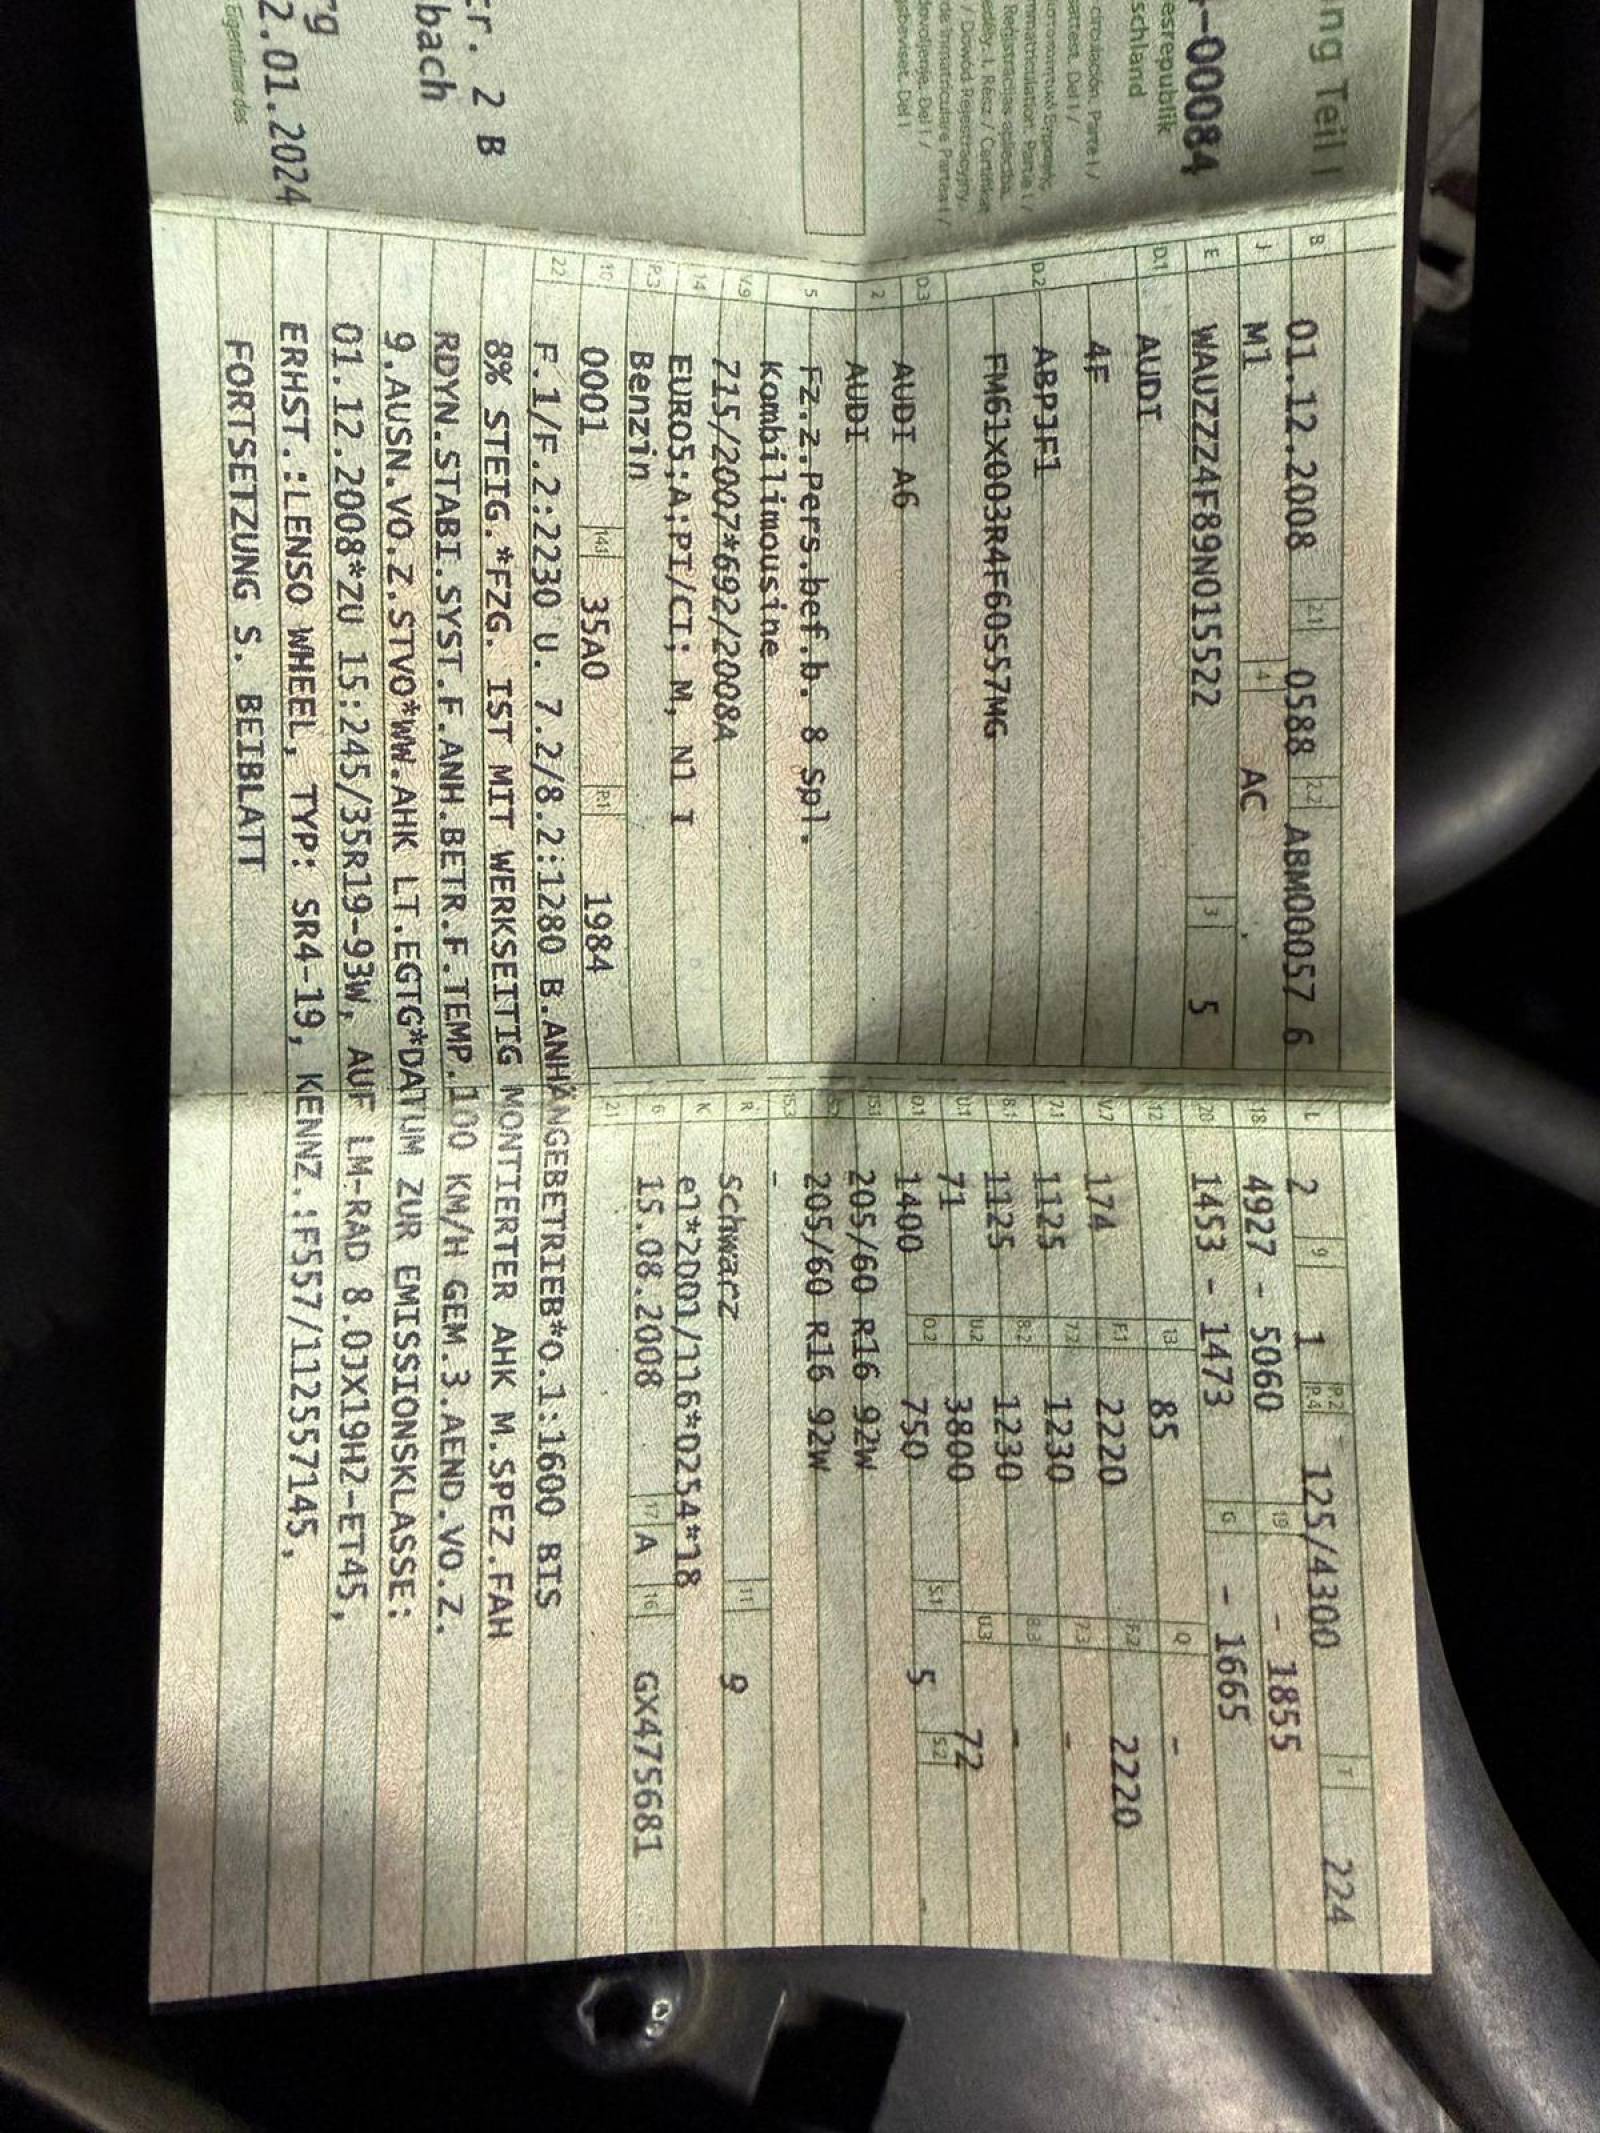 ng Teil I
-00084
esrepublik
schland
circulación. Parte I /
attest. Del I /
mmatriculation. Partie I /
de Înmatriculare Partea I /
r. 2 B
bach
rg
2.01.2024
Eigentümer des
B 01.12.2008 2.1 0588 2.2 ABM00057 6
J M1 4 AC
E WAUZZZ4F89N015522 3 5
D.1 AUDI
4F
D.2 ABPJF1
FM61X003R4F60S57MG
D.3 AUDI A6
2 AUDI
5 Fz.z.Pers.bef.b. 8 Spl.
Kombilimousine
V.9 715/2007*692/2008A
14 EURO5;A;PI/CI; M, N1 I
P.3 Benzin
10 0001 14.1 35A0 P.1 1984
L 2 9 1 P.2 P.4 125/4300 T 224
18 4927 - 5060 19 - 1855
20 1453 - 1473 G - 1665
12 13 85 Q -
V.7 174 F.1 2220 F.2 2220
7.1 1125 7.2 1230 7.3 -
8.1 1125 8.2 1230 8.3 -
U.1 71 U.2 3800 U.3 72
O.1 1400 O.2 750 S.1 5 S.2 -
15.1 205/60 R16 92W
15.2 205/60 R16 92W
15.3 -
R Schwarz 11 9
K e1*2001/116*0254*18
6 15.08.2008 17 A 16 GX475681
21
22 F.1/F.2:2230 U. 7.2/8.2:1280 B.ANHÄNGEBETRIEB*O.1:1600 BIS
8% STEIG.*FZG. IST MIT WERKSEITIG MONTIERTER AHK M.SPEZ.FAH
RDYN.STABI.SYST.F.ANH.BETR.F.TEMP.100 KM/H GEM.3.AEND.VO.Z.
9.AUSN.VO.Z.STVO*WW.AHK LT.EGTG*DATUM ZUR EMISSIONSKLASSE:
01.12.2008*ZU 15:245/35R19-93W, AUF LM-RAD 8.0JX19H2-ET45,
ERHST.:LENSO WHEEL, TYP: SR4-19, KENNZ.:F557/112557145,
FORTSETZUNG S. BEIBLATT